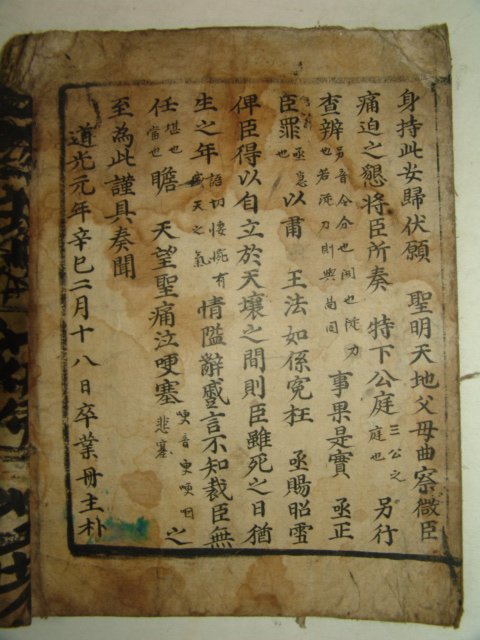 身持此安歸伏願 聖明天地父母曲察微臣
痛迫之懇將臣所奏 特下公庭 三公之庭也 另行
查辨 另音令分也 也若 刀則與 同 事果是實 亟正
臣罪 也 亟急 以肅 王法如係冤枉 亟賜昭雪
俾臣得以自立於天壤之間則臣雖死之日猶
生之年 語切悽惋有 天之氣 情隘辭蹙言不知裁臣無
任 堪也 當也 瞻 天望聖痛泣哽塞 哽音更哽咽 悲塞 之
至為此謹具奏聞
道光元年辛巳二月十八日卒業冊主朴